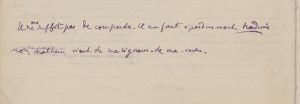 Il ne me suffit pas de comprendre. Il me faut éperdument traduire
mon malheur vient de ma rigueur - de ma vertu.